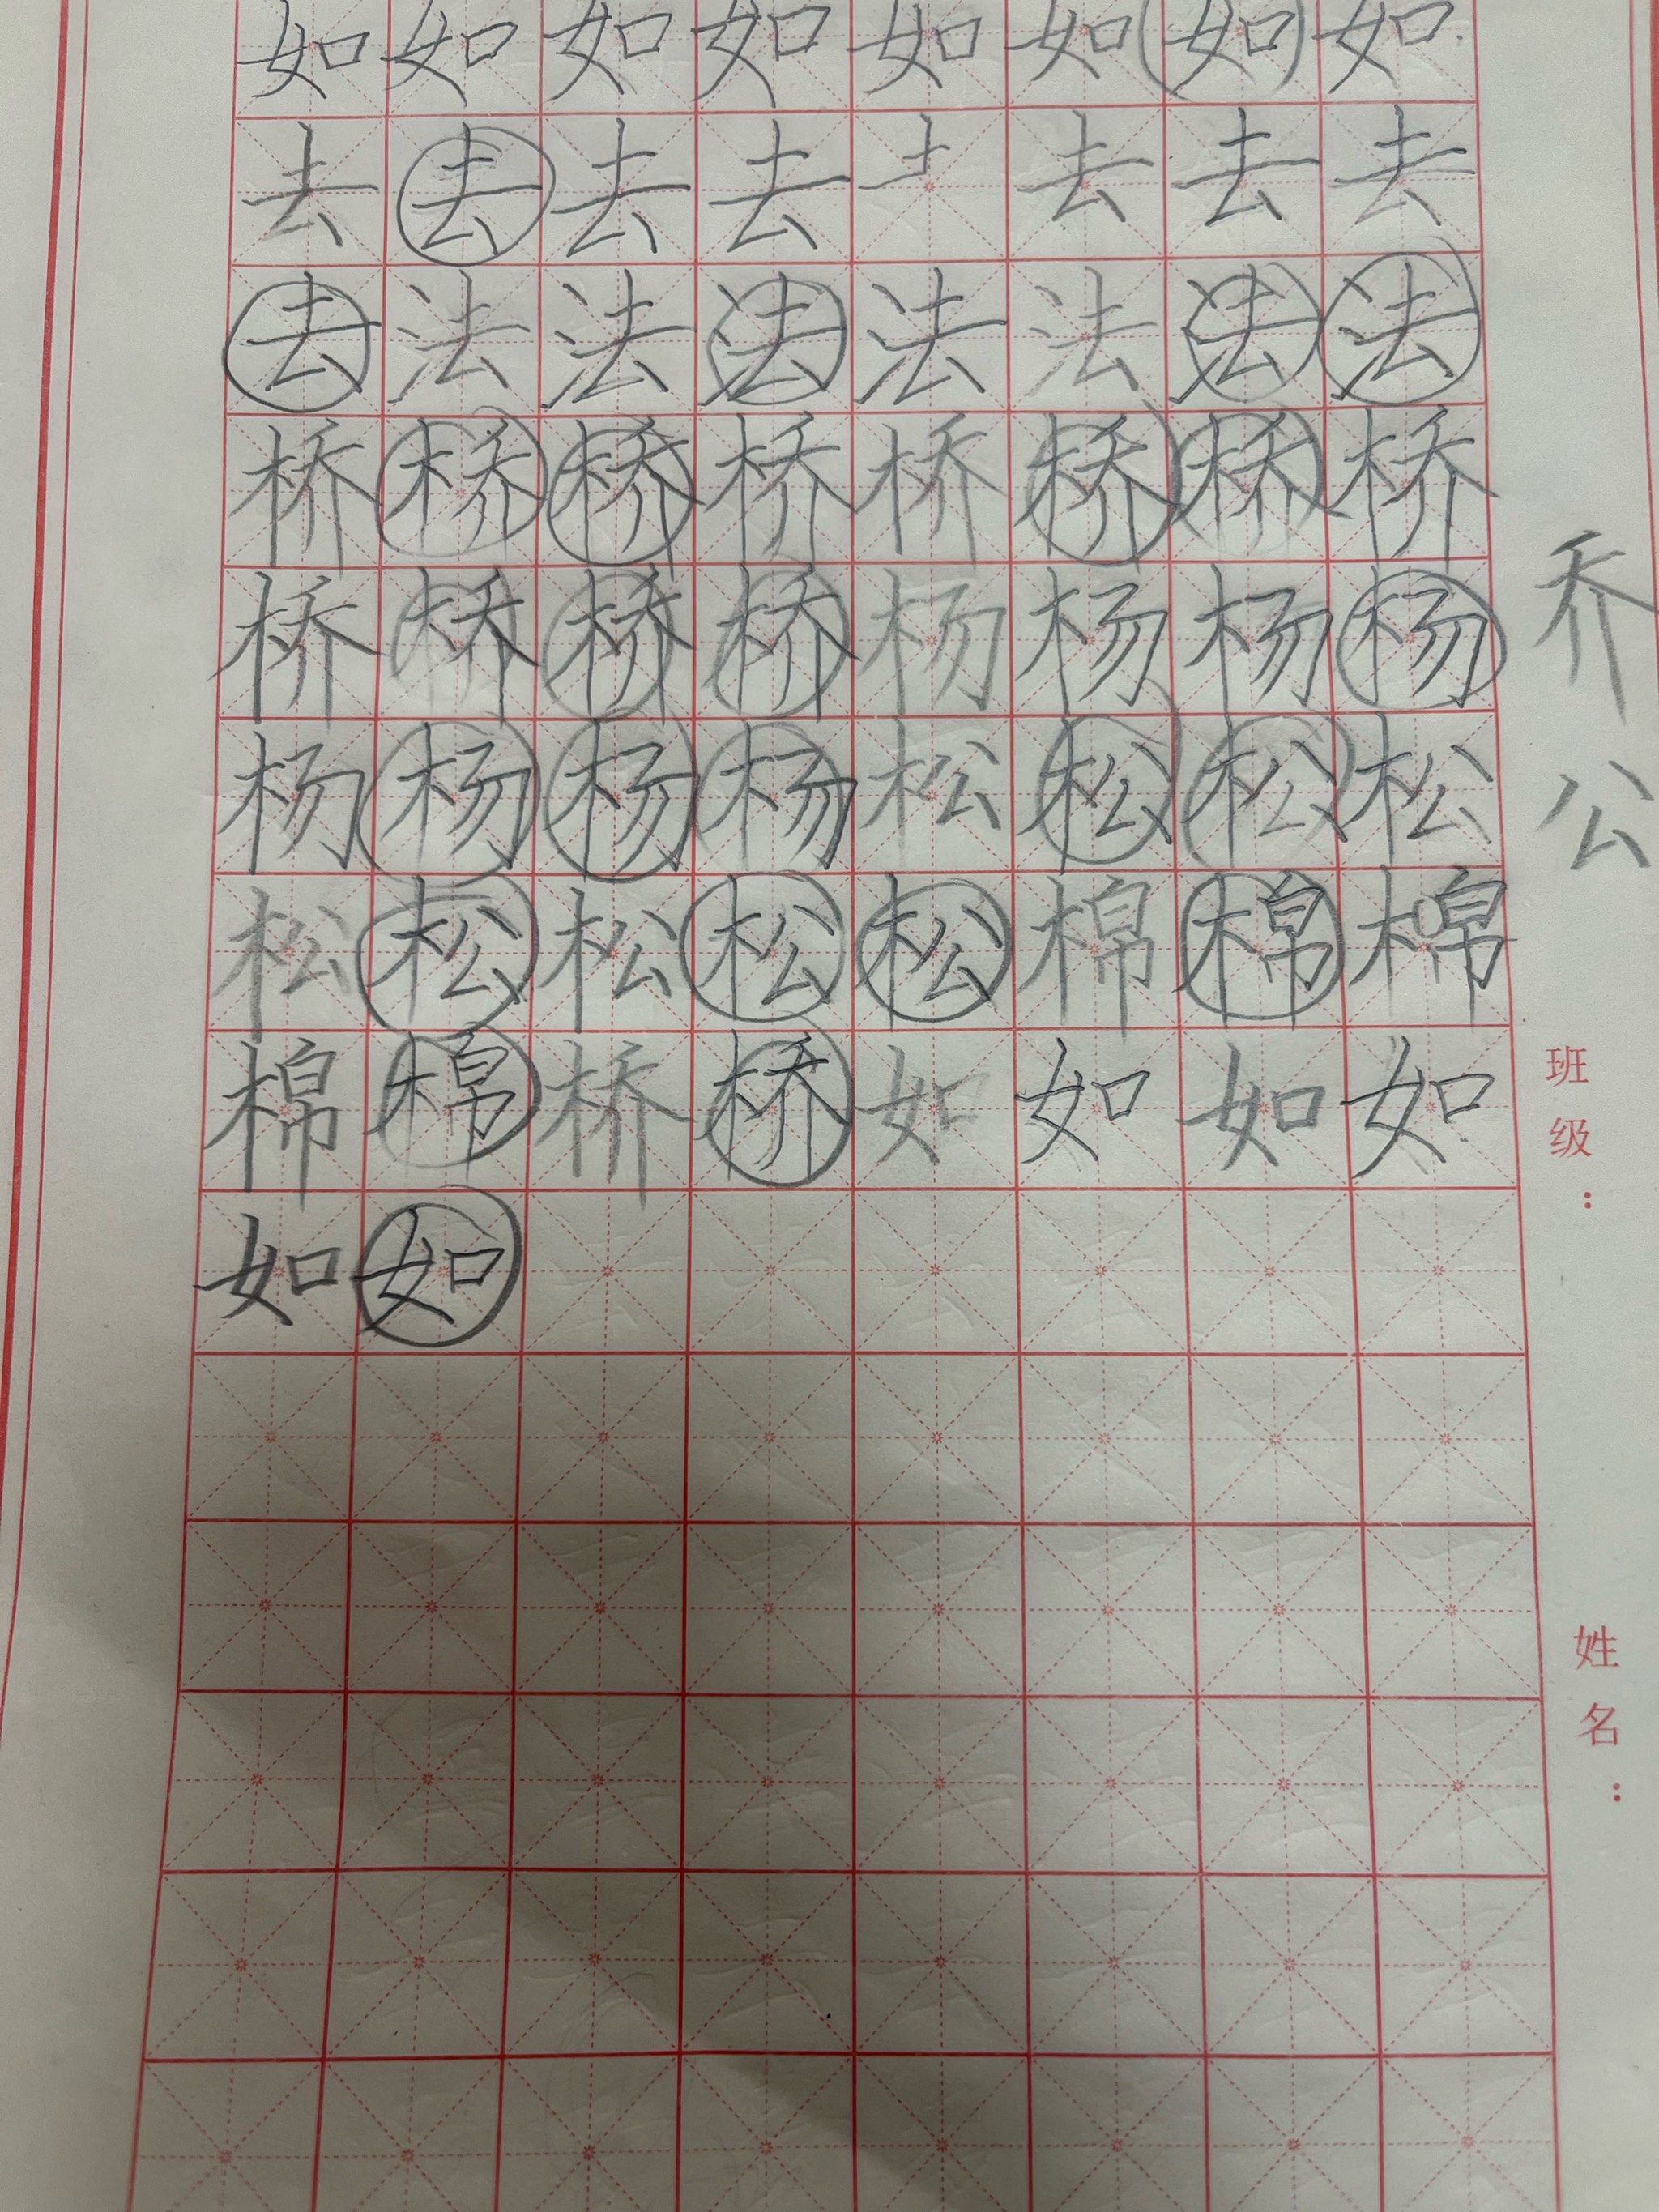 如如如如如如如如
去去去去去去去
去法法法法法法法
桥桥桥桥桥桥桥桥
桥桥桥桥杨杨杨杨
杨杨杨杨松松松松
松松松松松棉棉棉
棉棉桥桥如如如如
如如
乔
公
班级：
姓名：